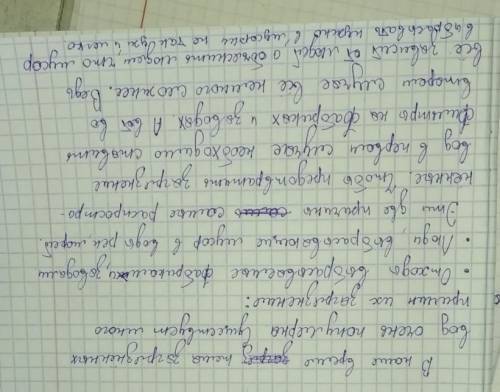 В наше время тема загрезненых
вод очень популярна Существует много
причин их загрезнению:
• Отходы выбрасываемые фабриками, заводами
• Люди, выбрасывающие мусор в воды рек морей.
Эти две причины самые распростро-
ненные. Чтобы предотвратить загрезнение
вод в первом случае необходимо ставить
фильтры на фабриках и заводах А вот во
втором случае все немного сложнее. Ведь
всё зависит от людей а объяснить людям что мусор
выбрасывать нужно в мусорки не так уж и легко